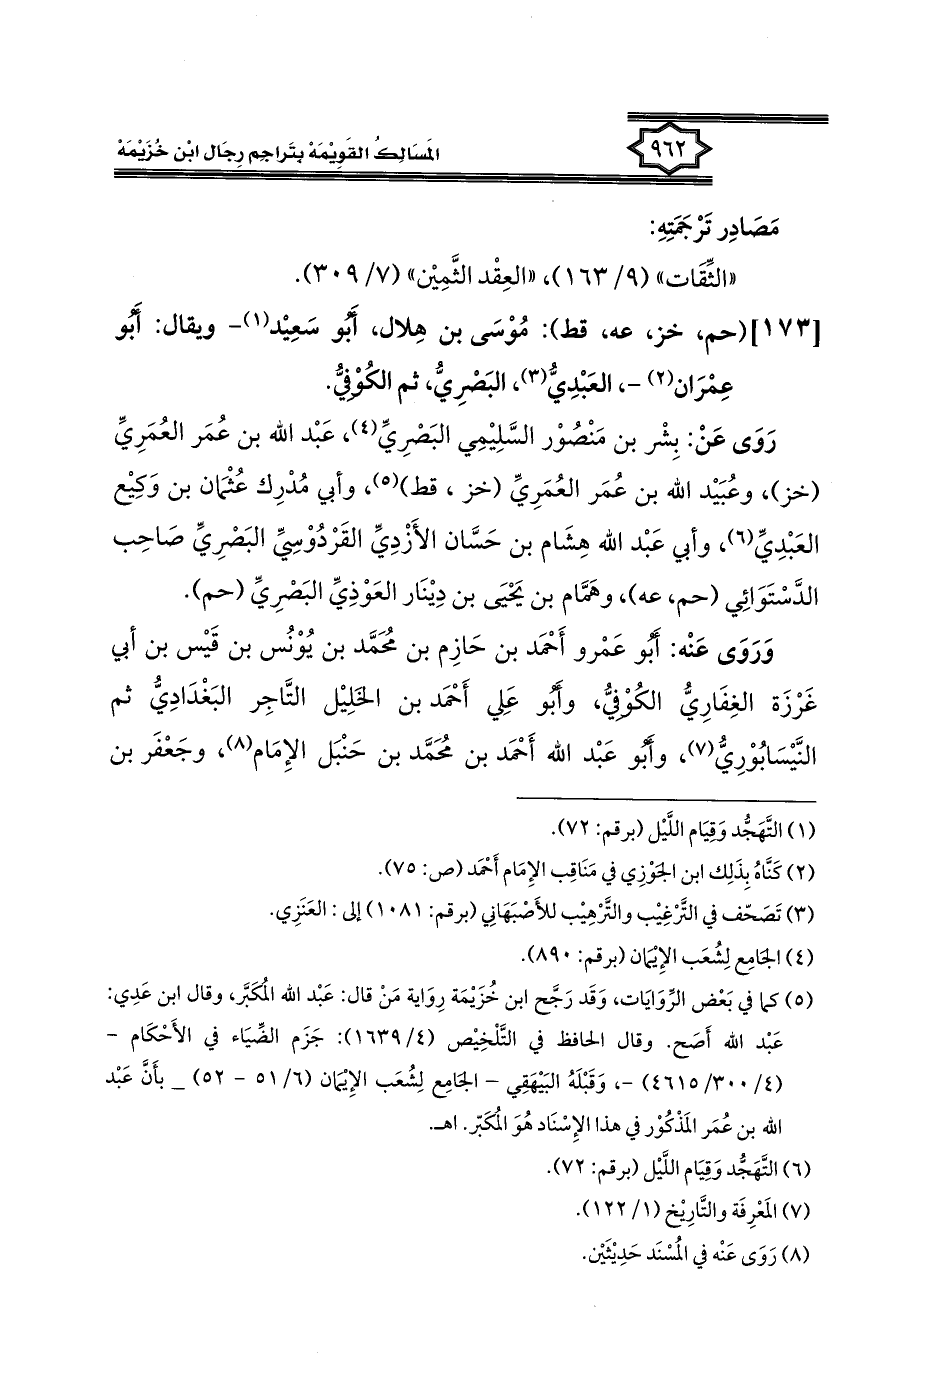 المسالك القويمة بتراجم رجال ابن خزيمة
٩٦٢
مَصَادِر تَرْجَمَتِهِ:
«الثِّقَات» (٩/ ١٦٣)، «العِقْد الثَّمِيْن» (٧/ ٣٠٩).
[١٧٣](حم، خز، عه، قط): مُوْسَى بن هِلال، أَبُو سَعِيْد(١)- ويقال: أَبُو
عِمْرَان(٢) -، العَبْدِيُّ(٣)، البَصْرِيُّ، ثم الكُوْفِيُّ.
رَوَى عَنْ: بِشْر بن مَنْصُوْر السَّلِيْمِي البَصْرِيِّ(٤)، عَبْد الله بن عُمَر العُمَرِيِّ
(خز)، وعُبَيْد الله بن عُمَر العُمَرِيِّ (خز ، قط)(٥)، وأبي مُدْرِك عُثْمَان بن وَكِيْع
العَبْدِيِّ(٦)، وأبي عَبْد الله هِشَام بن حَسَّان الأَزْدِيِّ القَرْدُوْسِيِّ البَصْرِيِّ صَاحِب
الدَّسْتَوَائِي (حم، عه)، وهَمَّام بن يَحْيَى بن دِيْنَار العَوْذِيِّ البَصْرِيِّ (حم).
وَرَوَى عَنْه: أَبُو عَمْرو أَحْمَد بن حَازِم بن مُحَمَّد بن يُوْنُس بن قَيْس بن أبي
غَرْزَة الغِفَارِيُّ الكُوْفِيُّ، وأَبُو عَلِي أَحْمَد بن الخَلِيْل التَّاجِر البَغْدَادِيُّ ثم
النَّيْسَابُوْرِيُّ(٧)، وأَبُو عَبْد الله أَحْمَد بن مُحَمَّد بن حَنْبَل الإمَام(٨)، وجَعْفَر بن
(١) التَّهَجُّد وَقِيَام اللَّيْل (برقم: ٧٢).
(٢) كَنَّاهُ بِذَلِك ابن الجَوْزِي في مَنَاقِب الإمَام أَحْمَد (ص: ٧٥).
(٣) تَصَحّف في التَّرْغِيْب والتَّرْهِيْب للأَصْبَهَاني (برقم: ١٠٨١) إلى : العَنَزِي.
(٤) الجَامِع لِشُعَب الإيْمَان (برقم: ٨٩٠).
(٥) كما في بَعْض الرِّوَايَات، وَقَد رَجَّح ابن خُزَيْمَة رِوَاية مَنْ قال: عَبْد الله المُكَبَّر، وقال ابن عَدِي:
عَبْد الله أَصَح. وقال الحَافظ في التَّلْخِيْص (٤/ ١٦٣٩): جَزَم الضِّيَاء في الأَحْكَام -
(٤/ ٣٠٠/ ٤٦١٥) -، وَقَبْلَهُ البَيْهَقِي - الجَامِع لِشُعَب الإيْمَان (٦/ ٥١ - ٥٢) _ بأَنَّ عَبْد
الله بن عُمَر المَذْكُوْر في هذا الإسْنَاد هُوَ المُكَبّر. اهـ.
(٦) التَّهَجُّد وَقِيَام اللَّيْل (برقم: ٧٢).
(٧) المَعْرِفَة والتَّارِيْخ (١/ ١٢٢).
(٨) رَوَى عَنْه في المُسْنَد حَدِيْثَيْن.